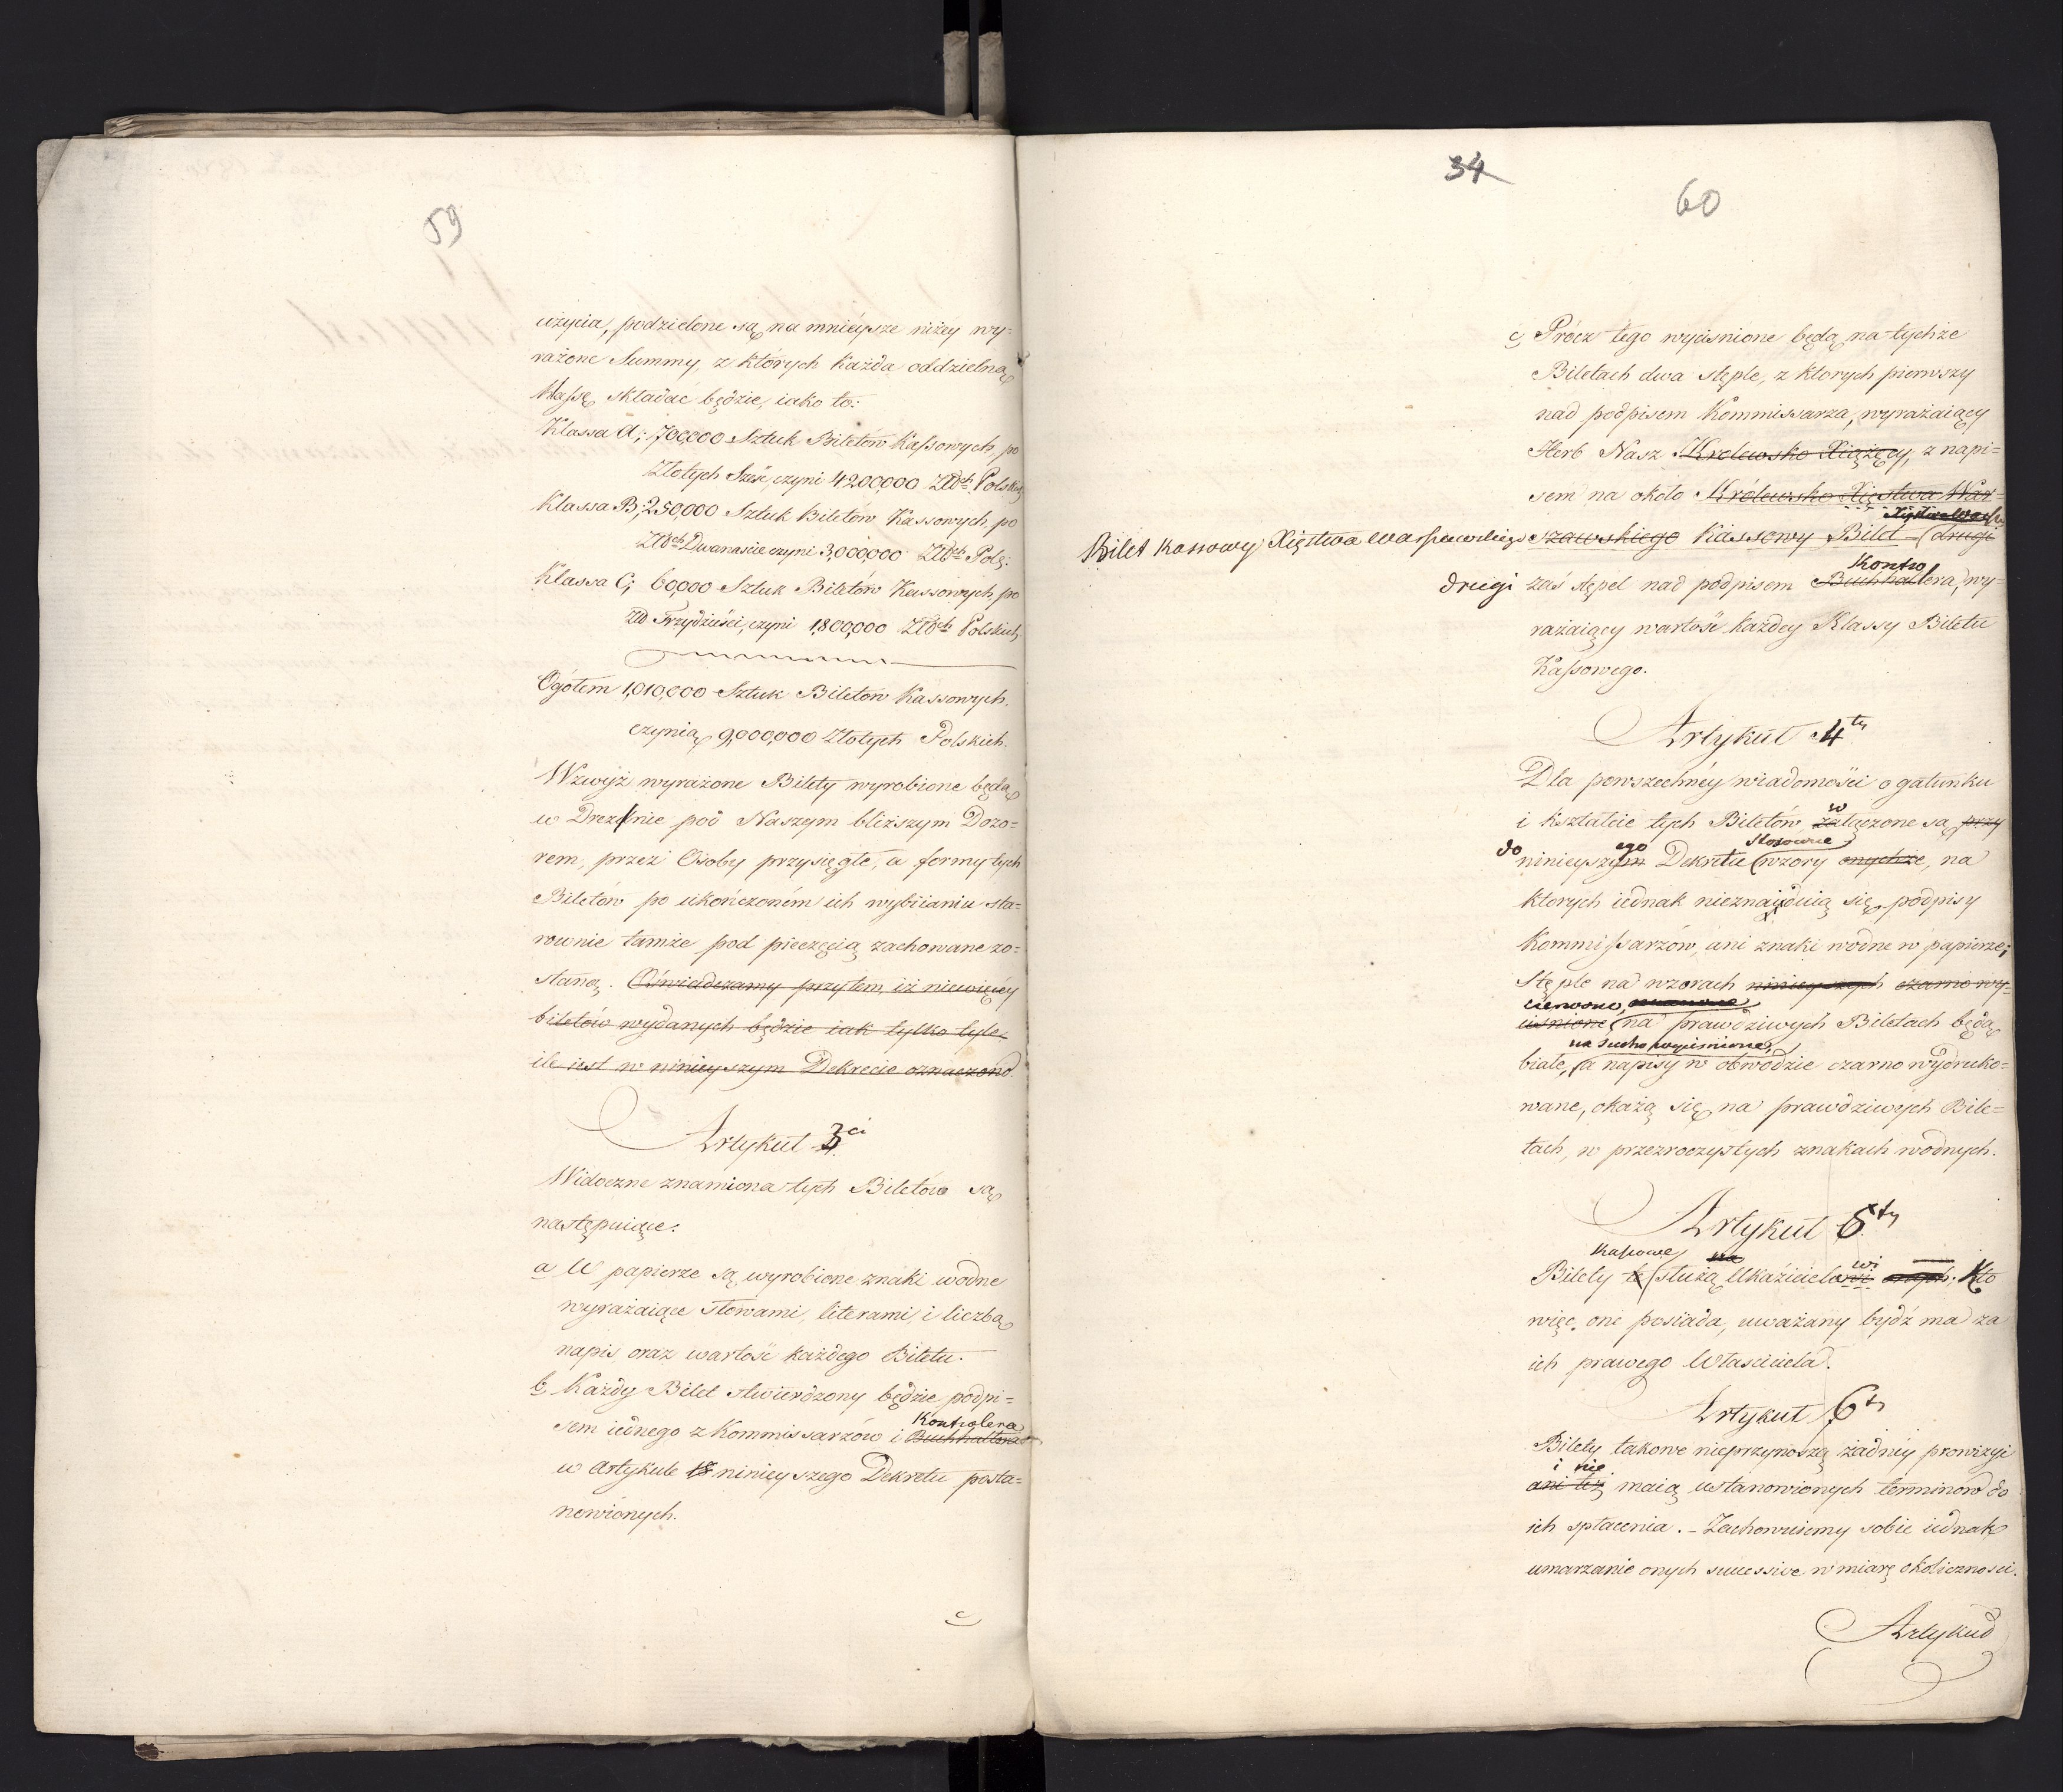 59
użycia, podzielone są na mnieysze niżey wy=
rażone Summy, z których każda oddzielną
Massę składać będzie, iako to:
Klassa A; 700,000 Sztuk Biletów Kassowych, po
Złotych Sześć, czyni 4,200,000 Złotch Polskich
Klassa B; 250,000 Sztuk Biletów Kassowych, po
Złotch Dwanaście czyni 3,000,000 Złotch Pols:
Klassa C; 60,000 Sztuk Biletów Kassowych, po
Zło Trzydzieści, czyni 1,800,000 Złotch Polskich
Ogółem 1,010,000 Sztuk Biletów Kassowych.
czynią 9,000,000 Złotych Polskich.
Wzwyż wyrażone Bilety wyrobione będą
w Dreznie pod Naszym bliższym Dozo=
rem, przez Osoby przysięgłe, a formy tych
Biletów po ukończoném ich wybiianiu sta=
rownie tamże pod pieczęcią zachowane zo=
staną. Oświadczamy przytem, iż niewięcey
biletów wydanych będzie iak tylko tyle
ile iest w ninieyszym Dekrecie oznaczono.
Artykuł 3ci
Widoczne znamiona tych Biletów są
następuiące:
a W papierze są wyrobione znaki wodne
wyrażaiące słowami, literami, i liczbą
napis oraz wartość każdego Biletu.
b, Każdy Bilet stwierdzony będzie podpi=
Kontrolera
sem iednego z Kommissarzów i Buchhaltera
w Artykule 18 ninieyszego Dekretu posta=
nowionych.
c
34
60
c, Prócz tego wyciśnione będą na tychże
Biletach dwa stęple, z ktorych pierwszy
nad podpisem Kommissarza, wyrażaiący
Herb Nasz Krolewsko Xiążęcy, z napi=
sem na około Królewsko Xięstwa War=
Bilet Kassowy Xięstwa Warszawskiego szawskiego Kassowy Bilet drugi
Kontro
drugi zaś stępel nad podpisem Buchhaltera, wy=
rażaiący wartość każdey Klassy Biletu
Kassowego.
Artykuł 4ty
Dla powszechney wiadomości o gatunku
w
i kształcie tych Biletów, załączone są przy
ego stosowne
do ninieyszym Dekretu wzory onychże, na
ktorych iednak nieznayduią się podpisy
Kommissarzów, ani znaki wodne w papierze;
Stęple na wzorach ninieyszych czarno wy=
czerwone,
ciśnione, na prawdziwych Biletach będą
na sucho wyciśnione,
białe, a napisy w obwódzie czarno wydruko=
wane, okażą się na prawdziwych Bile=
tach, w przezroczystych znakach wodnych.
Artykuł 5ty
Kassowe wi
Bilety te służą Ukaźicielowi onych; Kto
więc one posiada, uważany bydź ma za
ich prawego Właściciela.
Artykuł 6ty
Bilety takowe nieprzynoszą żadney prowizyi
i nie
ani też maią ustanowionych terminów do
ich spłacenia. – Zachowuiemy sobie iednak
umarzanie onych successive w miarę okoliczności.
Artykuł